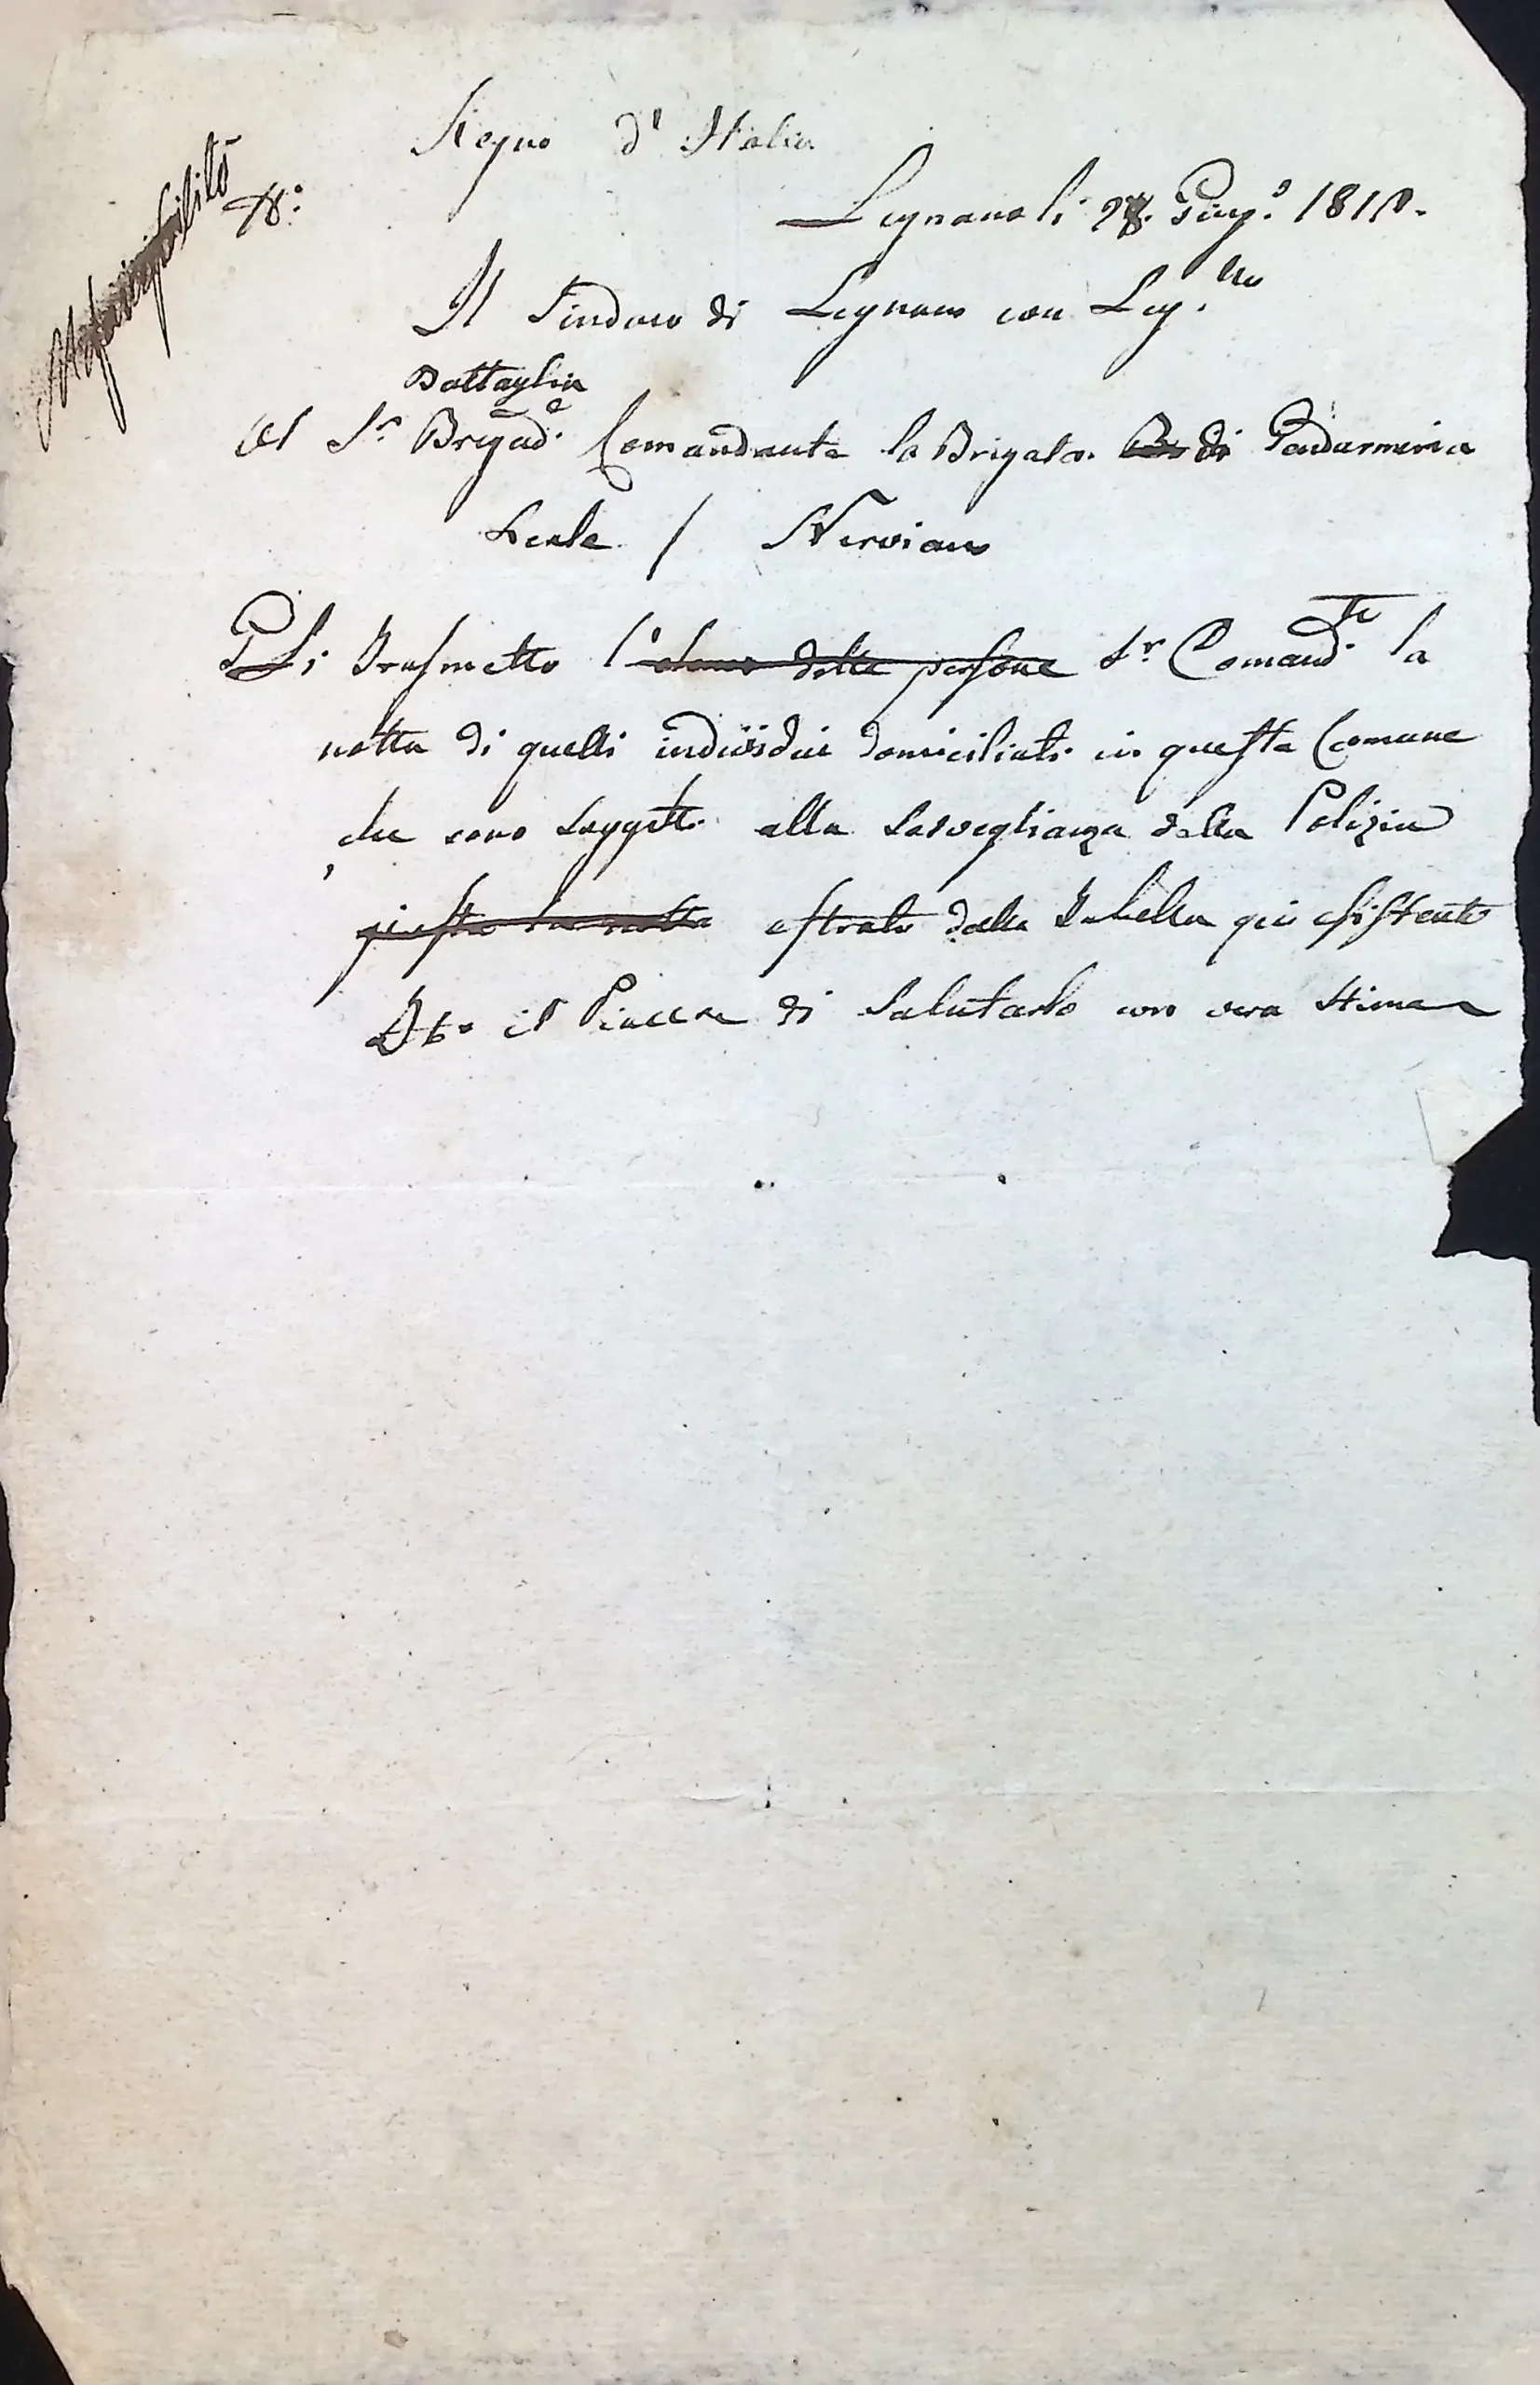 Regno d'Italia
N.°
Legnano li 28. Giug.° 1810.
Il Sindaco di Legnano con Leg.llo
Battaglia
Al S.r Brigad.e Comandante la Brigata di Gendarmeria
Reale / Nerviano
Gli Trasmetto l'elenco delle persone S.r Comand.te la
notta di quelli individui domiciliati in questa Comune
che sono soggetti alla Sorveglianza della Polizia
giusta la notta estratto dalla Tabella qui esistente
Ho il Piacere di Salutarlo con vera Stima